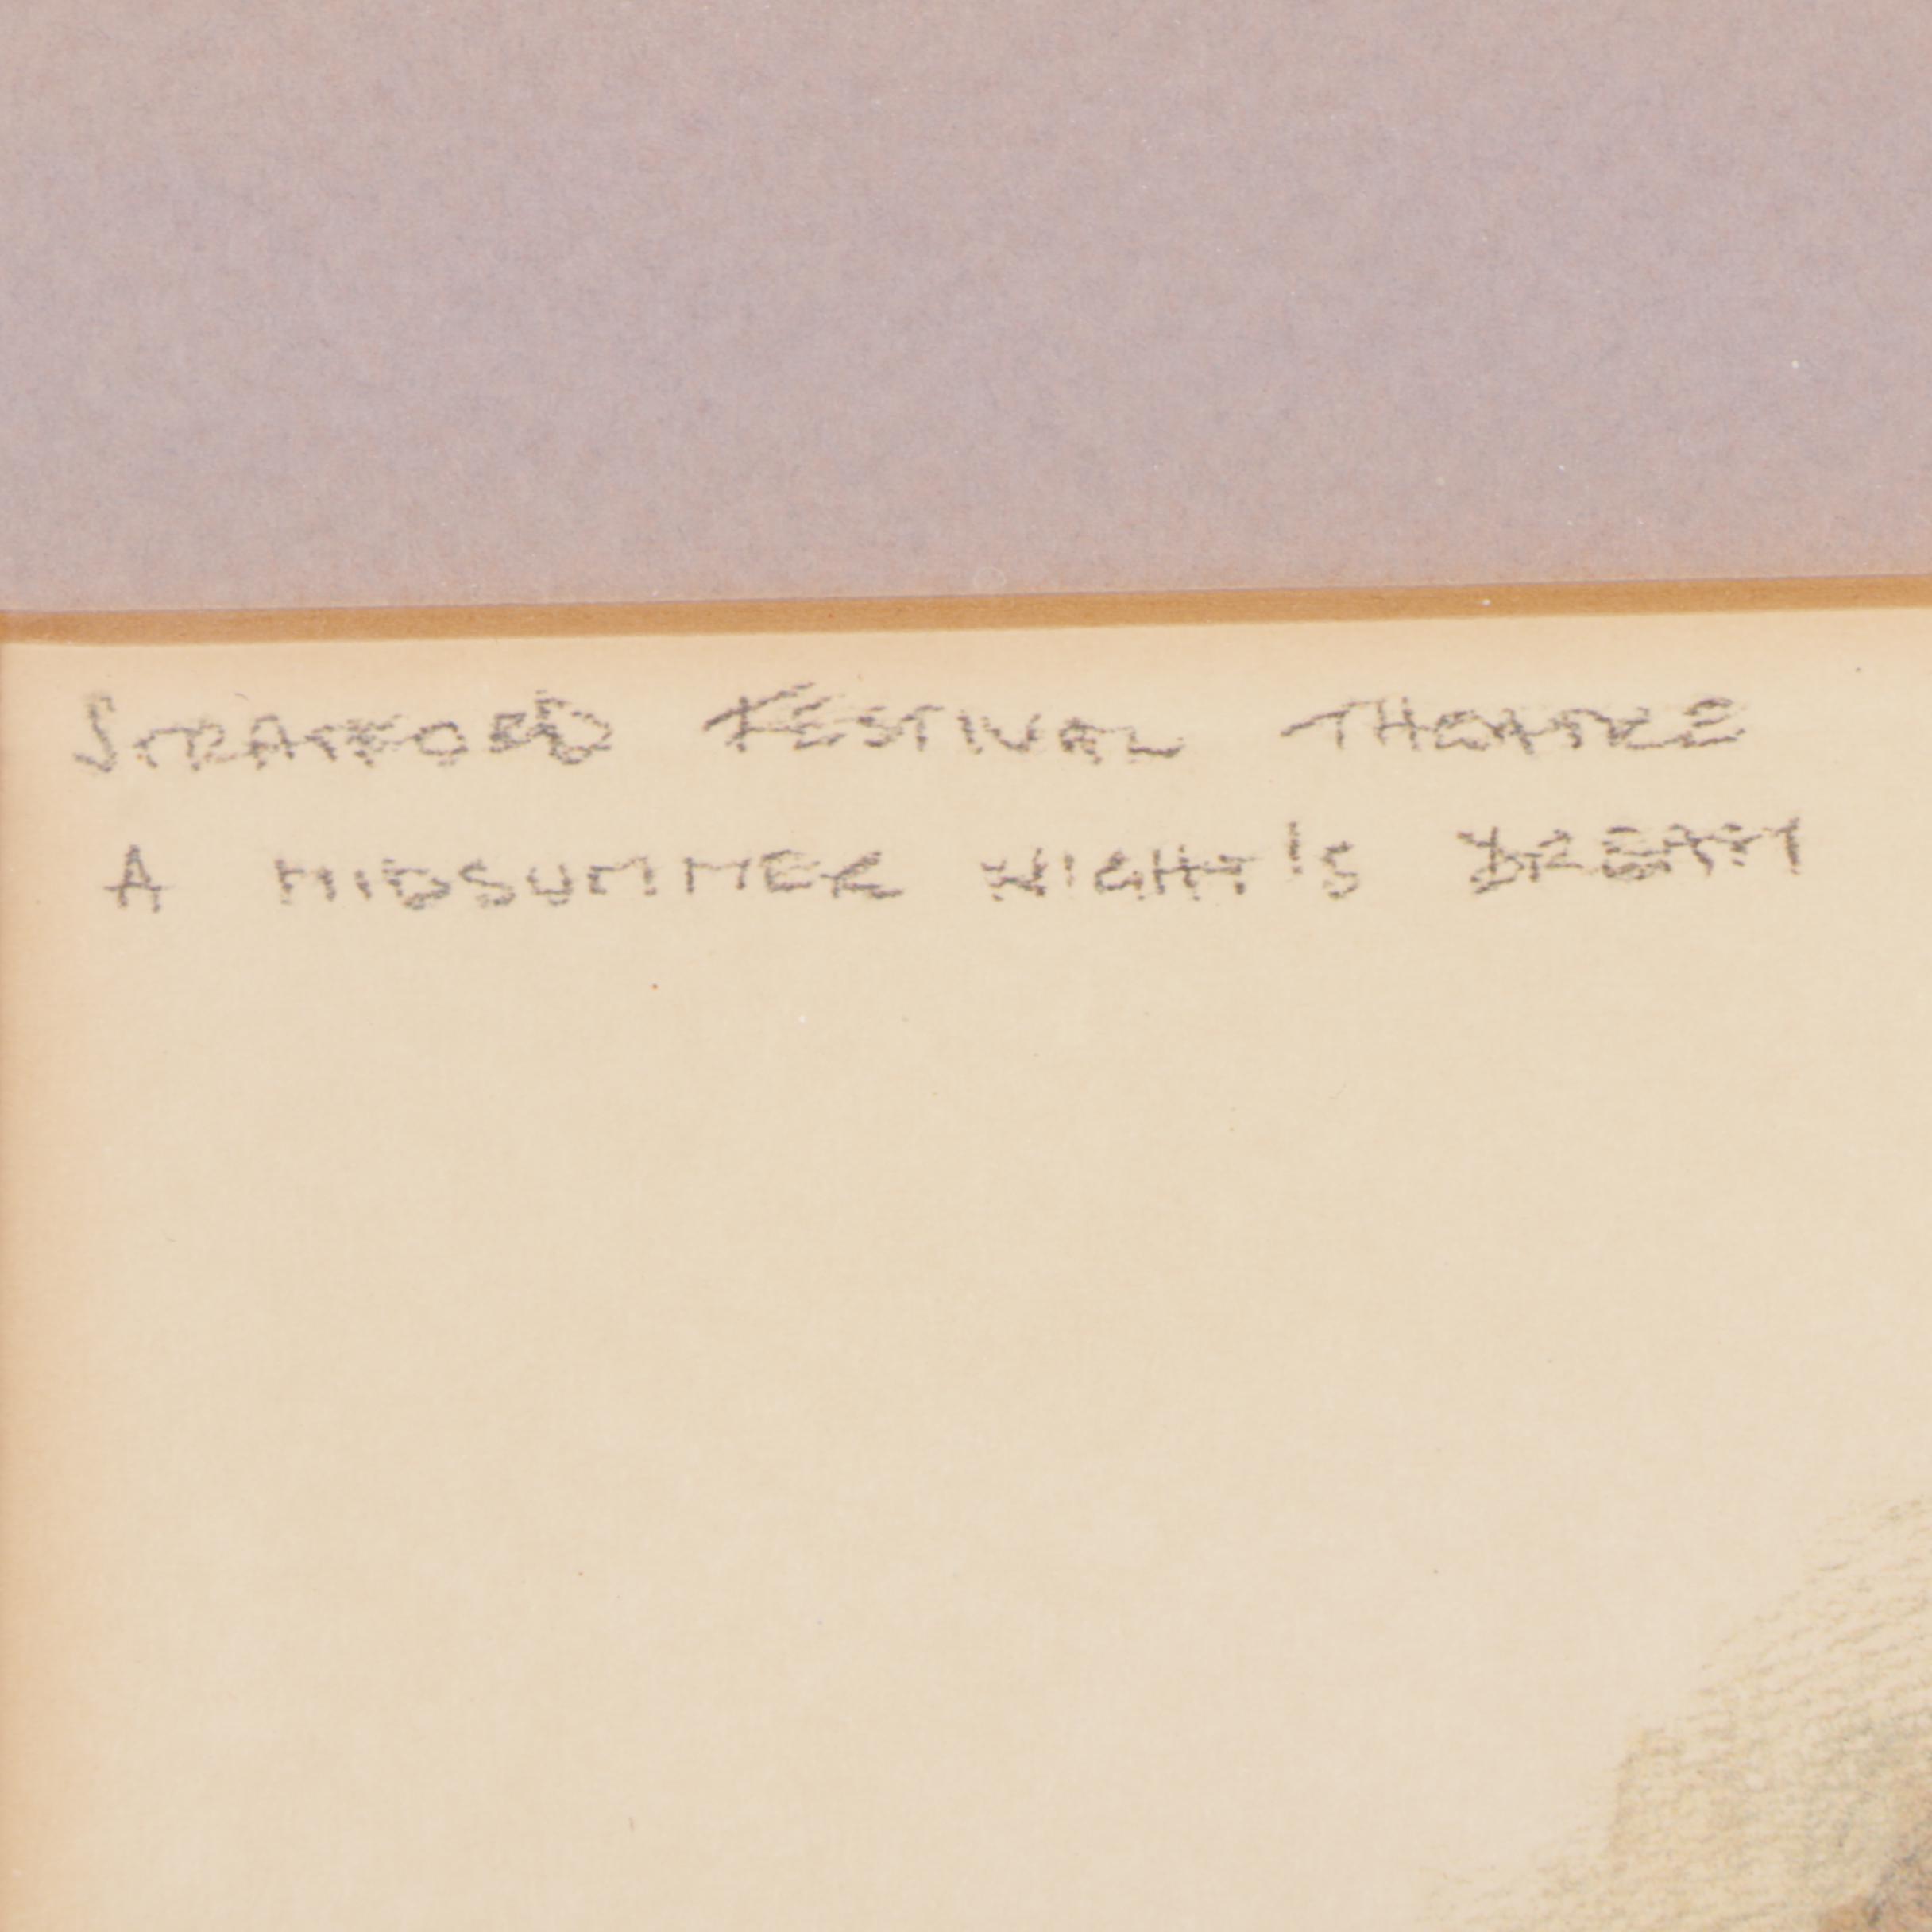 STRATFORD FESTIVAL THEATRE
A MIDSUMMER NIGHT'S DREAM